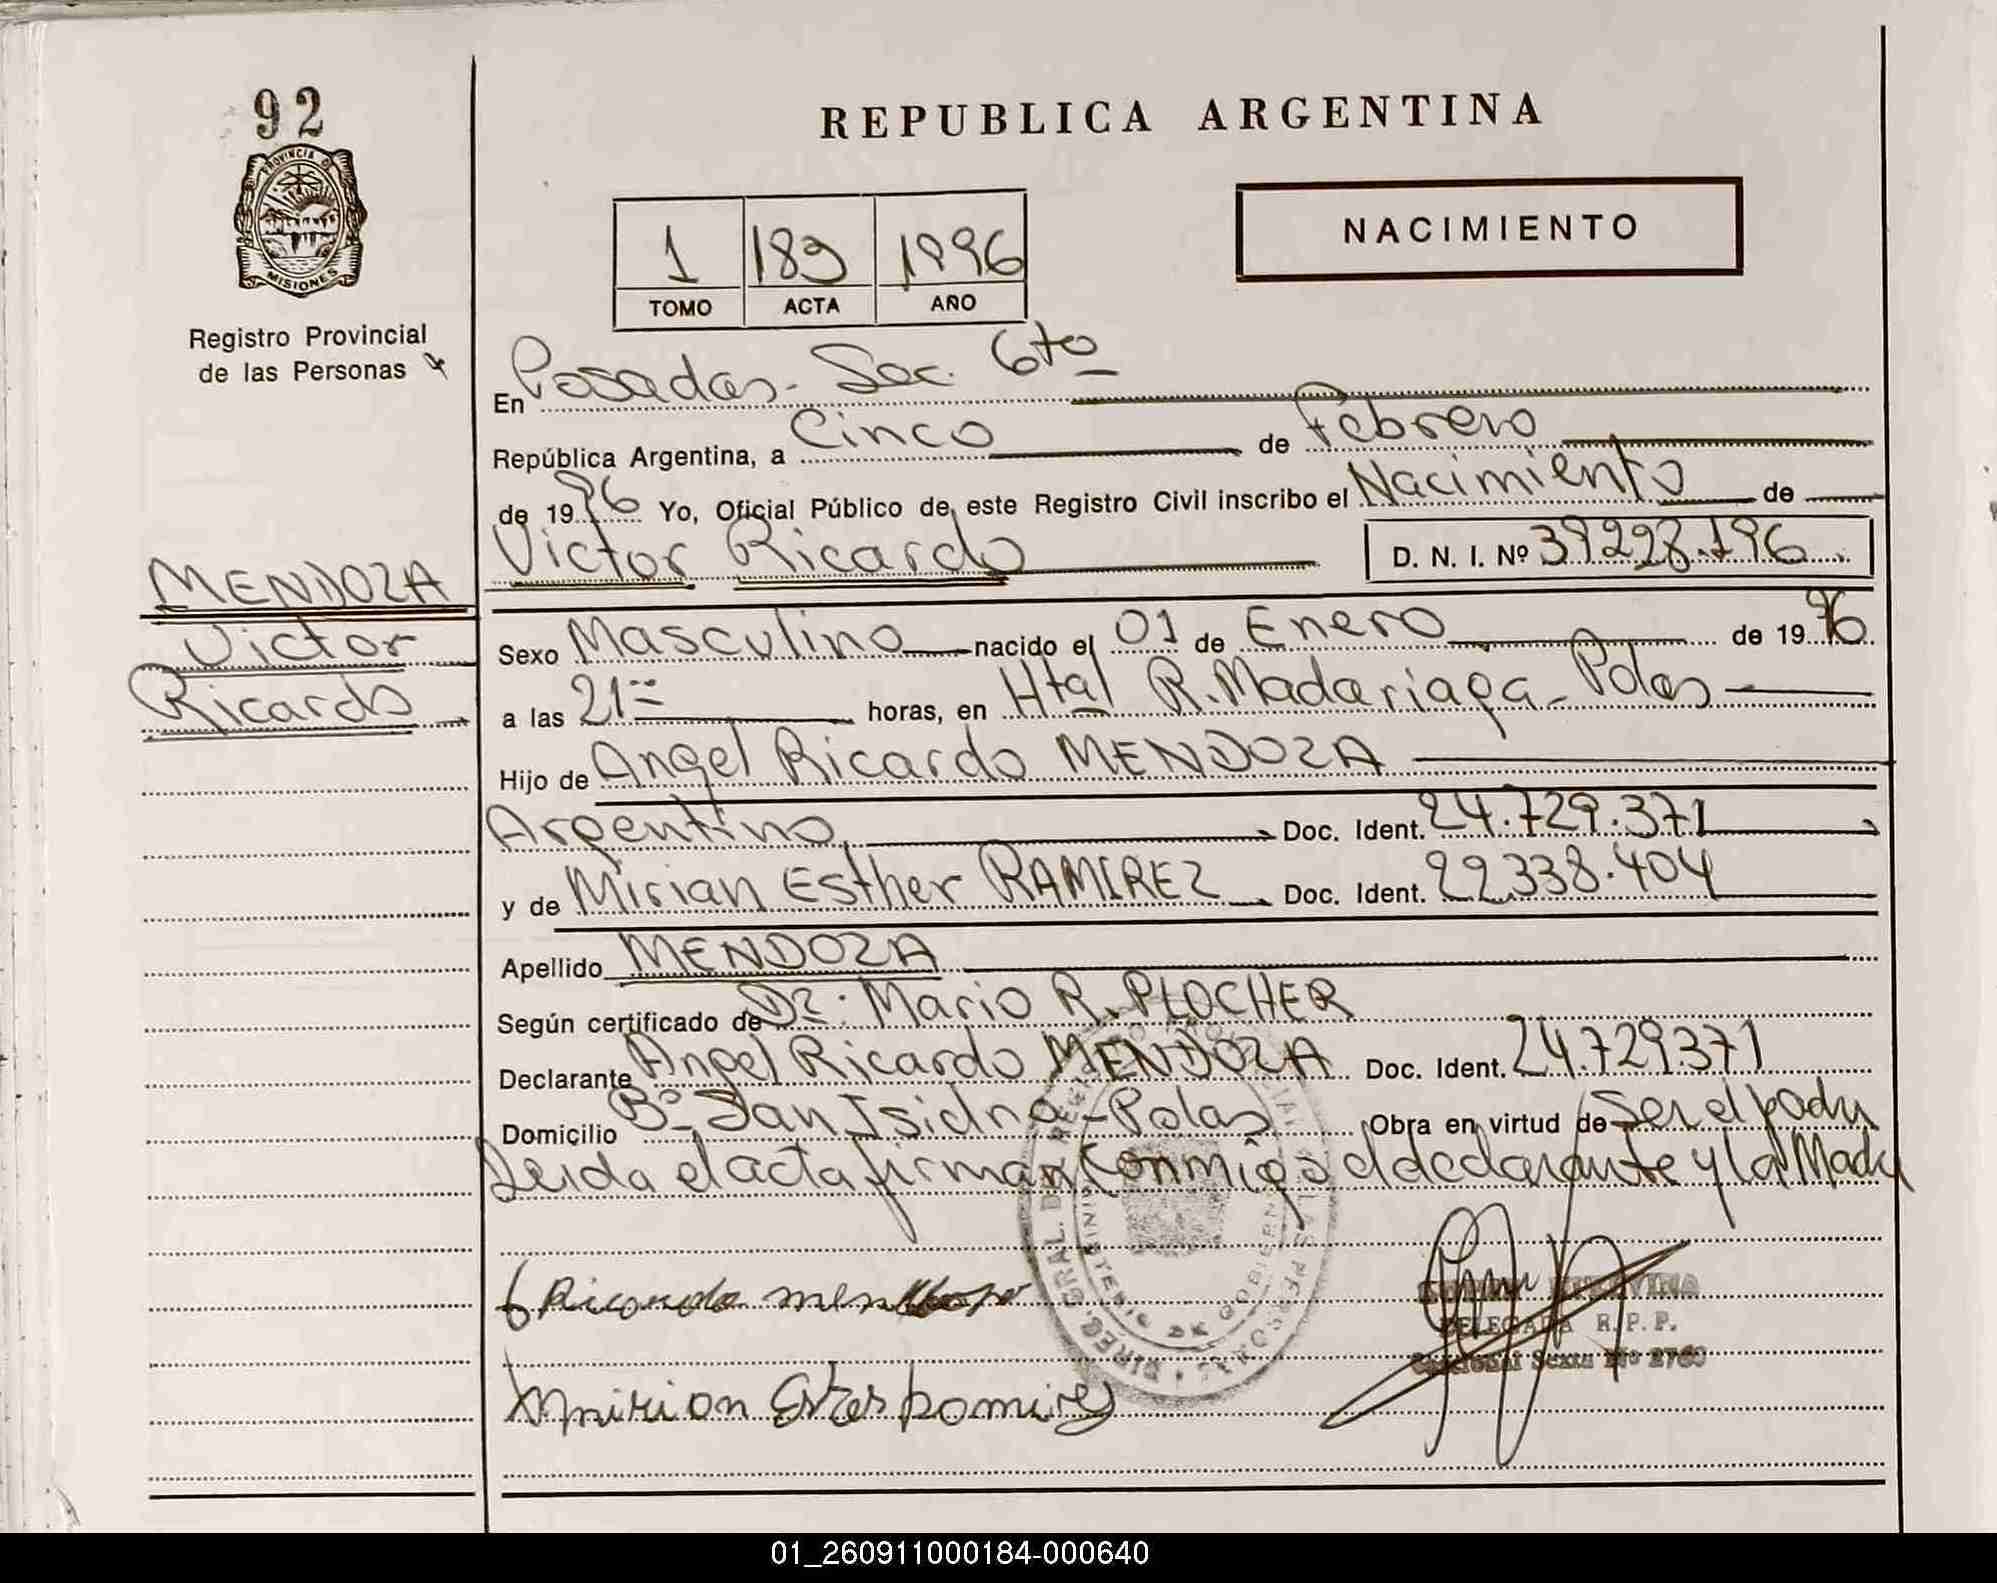 92
PROVINCIA DE
MISIONES
Registro Provincial
de las Personas
REPUBLICA ARGENTINA
NACIMIENTO
1 189 1996
TOMO ACTA AÑO
En Posadas - Sec. 6to
República Argentina, a Cinco de Febrero
de 1996 Yo, Oficial Público de este Registro Civil inscribo el Nacimiento de
Victor Ricardo D. N. I. Nº 39.228.796
MENDOZA
Victor
Ricardo
Sexo Masculino nacido el 01 de Enero de 1996
a las 21 horas, en Htal R. Madariaga - Pdas
Hijo de Angel Ricardo MENDOZA
Argentino, Doc. Ident. 24.729.371
y de Mirian Esther RAMIREZ Doc. Ident. 22.338.404
Apellido MENDOZA
Según certificado de Dr: Mario R. PLOCHER
Declarante Angel Ricardo MENDOZA Doc. Ident. 24.729371
Domicilio Bº San Isidro - Pdas Obra en virtud de Ser el padre
Leida el acta firman Conmigo el declarante y la Madre
Ricardo
DIREC. GRAL. DE REG
MINISTERIO DE GOBIERNO
DELEGADA R. P. P.
Seccional Sexta Nº 2760
01_260911000184-000640